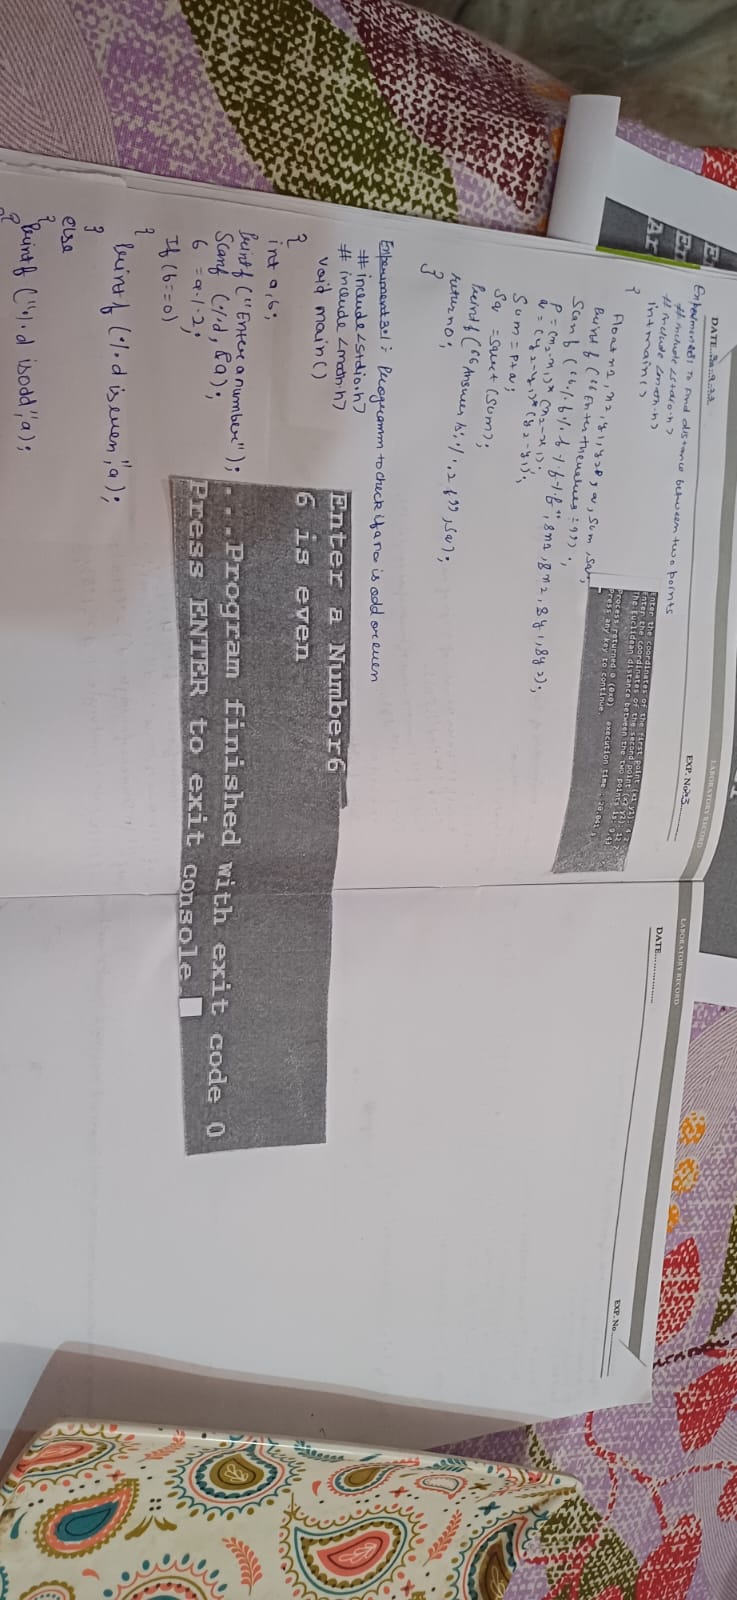 LABORATORY RECORD
DATE
EXP. No 3
to find distance between two points
# include <stdio.h>
# include <math.h>
int main()
{
Float x1, x2, y1, y2, p, q, sum, sqr;
Printf ("Enter the values :");
Scanf ("%f%f%f%f", &x1, &x2, &y1, &y2);
P = (x2-x1)*(x2-x1);
q = (y2-y1)*(y2-y1);
Sum = P+q;
Sq = Sqrt (Sum);
Printf ("Answer is: %.2f", sq);
return 0;
}
Enter the coordinates of the first point (x1 y1): 4 2
Enter the coordinates of the second point (x2 y2): 12
The Euclidean distance between the two points is: 9.43
Process returned 0 (0x0) execution time : 20.041 s
Press any key to continue.
Experiment 3.1: Programm to check if a no is odd or even
# include <stdio.h>
# include <math.h>
void main()
{
int a, b;
Printf ("Enter a number");
Scanf (%d, &a);
6 = a%2;
If (b==0)
{
Printf (%d is even", a);
}
else
{
Printf ("%d is odd", a);
Enter a Number6
6 is even
...Program finished with exit code 0
Press ENTER to exit console.
LABORATORY RECORD
DATE
EXP. No